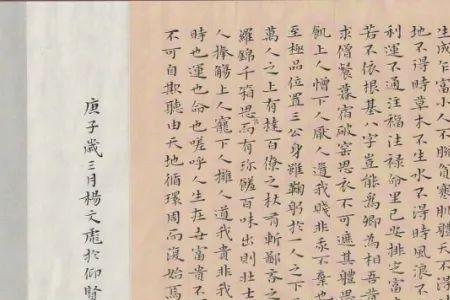 生成乍富小人不脫貧寒肌體天不得
地不得時草木不生水不得時風浪不
利運不通注福注祿命里已安排定富
若不依根基八字豈能為卿為相吾昔
求僧餐暮宿破窑思衣不可遮其體思
飢上人憎下人厭人道我賤非我不棄也
至極品位置三公身雖鞠躬於一人之下
萬人之上有撻百僚之杖有斬鄙吝之
羅錦千箱思而有珍饈百味出則壯士
人捧觴上人寵下人擁人道我貴非我
時也運也命也嗟呼人生在世富貴不
不可自欺聽由天地循環周而復始焉
庚子歲三月楊文於仰賢